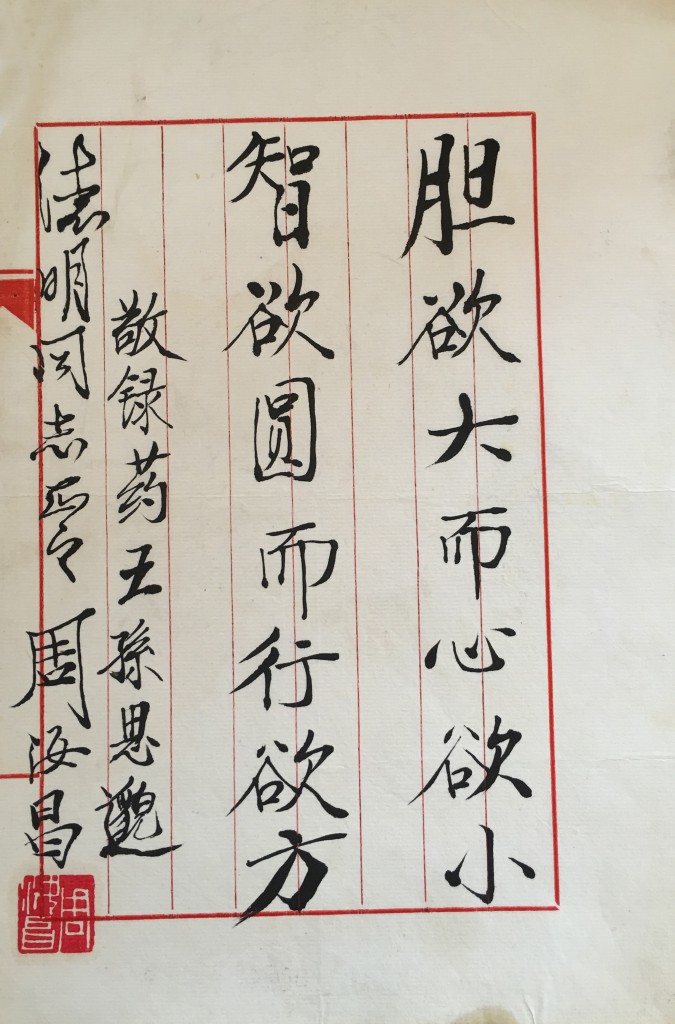 胆欲大而心欲小
智欲圆而行欲方
敬録药王孫思邈
德明同志正之 周汝昌
周汝昌